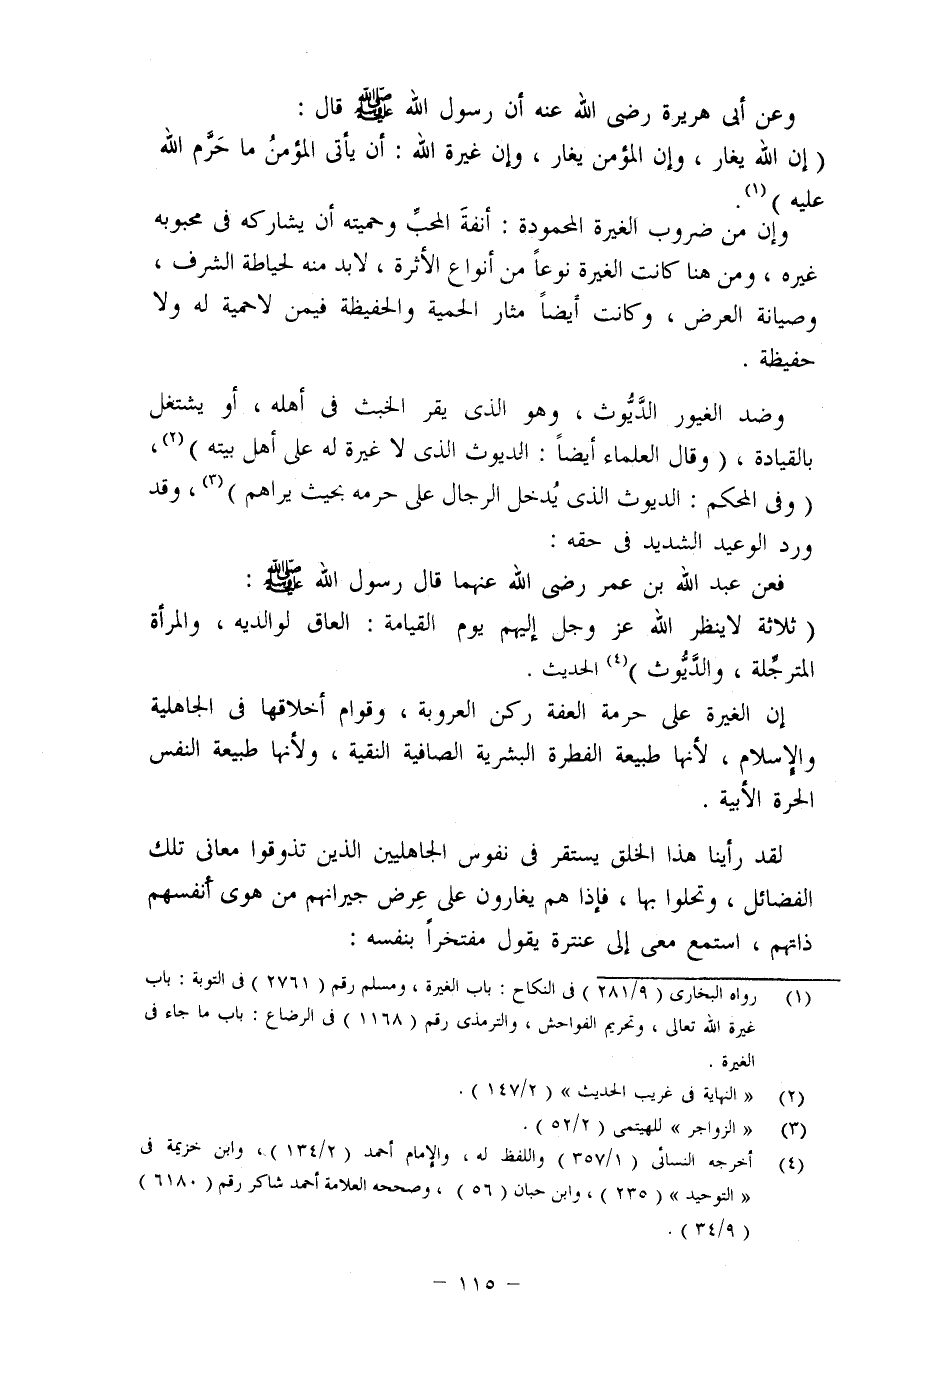 وعن أبى هريرة رضى الله عنه أن رسول الله ﷺ قال :
( إن الله يغار ، وإن المؤمن يغار ، وإن غيرة الله : أن يأتى المؤمنُ ما حَرَّم الله
عليه )(١).
وإن من ضروب الغيرة المحمودة : أنفةَ المحبِّ وحميته أن يشاركه فى محبوبه
غيره ، ومن هنا كانت الغيرة نوعاً من أنواع الأثرة ، لابد منه لحياطة الشرف ،
وصيانة العرض ، وكانت أيضاً مثار الحمية والحفيظة فيمن لاحمية له ولا
حفيظة .
وضد الغيور الدَّيُّوث ، وهو الذى يقر الخبث فى أهله ، أو يشتغل
بالقيادة ، ( وقال العلماء أيضاً : الديوث الذى لا غيرة له على أهل بيته )(٢)،
( وفى المحكم : الديوث الذى يُدخل الرجال على حرمه بحيث يراهم )(٣)، وقد
ورد الوعيد الشديد فى حقه :
فعن عبد الله بن عمر رضى الله عنهما قال رسول الله ﷺ :
( ثلاثة لاينظر الله عز وجل إليهم يوم القيامة : العاق لوالديه ، والمرأة
المترجِّلة ، والدَّيُّوث )(٤) الحديث .
إن الغيرة على حرمة العفة ركن العروبة ، وقوام أخلاقها فى الجاهلية
والإسلام ، لأنها طبيعة الفطرة البشرية الصافية النقية ، ولأنها طبيعة النفس
الحرة الأبية .
لقد رأينا هذا الخلق يستقر فى نفوس الجاهليين الذين تذوقوا معانى تلك
الفضائل ، وتحلوا بها ، فإذا هم يغارون على عِرض جيرانهم من هوى أنفسهم
ذاتهم ، استمع معى إلى عنترة يقول مفتخراً بنفسه :
(١) رواه البخارى ( ٢٨١/٩ ) فى النكاح : باب الغيرة ، ومسلم رقم ( ٢٧٦١ ) فى التوبة : باب
غيرة الله تعالى ، وتحريم الفواحش ، والترمذى رقم ( ١١٦٨ ) فى الرضاع : باب ما جاء فى
الغيرة .
(٢) « النهاية فى غريب الحديث » ( ١٤٧/٢ ) .
(٣) « الزواجر » للهيتمى ( ٥٢/٢ ) .
(٤) أخرجه النسائى ( ٣٥٧/١ ) واللفظ له ، والإمام أحمد ( ١٣٤/٢ )، وابن خزيمة فى
« التوحيد » ( ٢٣٥ ) ، وابن حبان ( ٥٦ ) ، وصححه العلامة أحمد شاكر رقم ( ٦١٨٠ )
( ٣٤/٩ ) .
– ١١٥ –